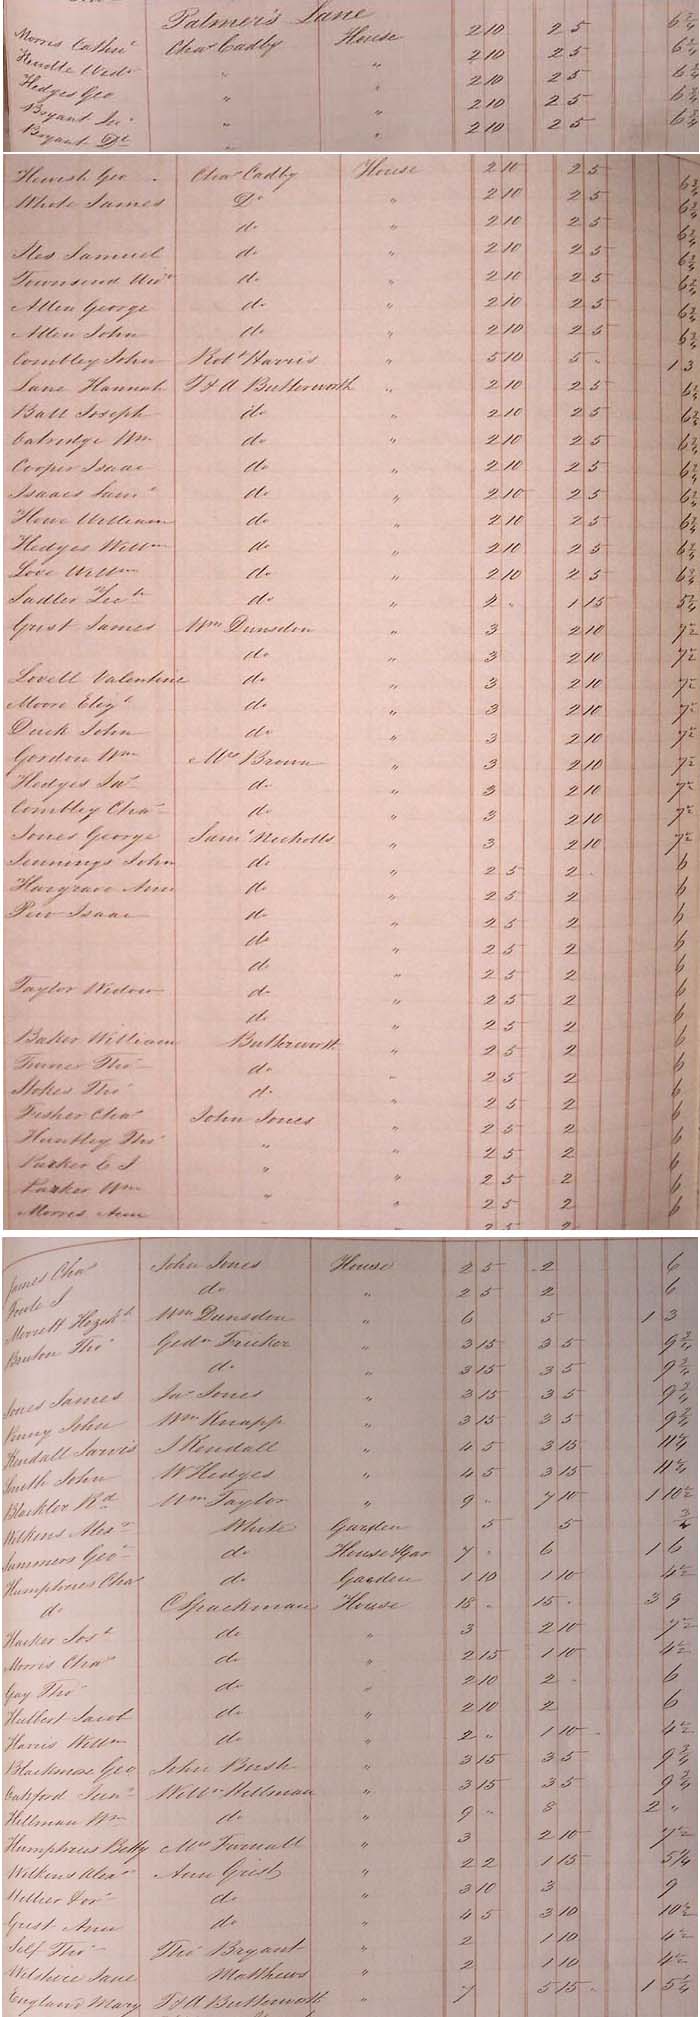 Palmer's Lane
Morris Cathe Chas Cadby House 2 10 2 5 6 3/4
Wido " " 2 10 2 5 6 3/4
Hedges Geo " " 2 10 2 5 6 3/4
Bryant Jn " " 2 10 2 5 6 3/4
Bryant Dl " " 2 10 2 5 6 3/4
Hewish Geo Chas Cadby House 2 10 2 5 6 3/4
White James Do " 2 10 2 5 6 3/4
do " 2 10 2 5 6 3/4
Iles Samuel do " 2 10 2 5 6 3/4
Townsend do " 2 10 2 5 6 3/4
Allen George do " 2 10 2 5 6 3/4
Allen John do " 2 10 2 5 6 3/4
Combley John Robt Harris " 5 10 5 " 1 3
Lane Hannah T & A Butterworth " 2 10 2 5 6 3/4
Ball Joseph do " 2 10 2 5 6 3/4
Oatridge Wm do " 2 10 2 5 6 3/4
Cooper Isaac do " 2 10 2 5 6 3/4
Isaacs Saml do " 2 10 2 5 6 3/4
Howe William do " 2 10 2 5 6 3/4
Hedges Willm do " 2 10 2 5 6 3/4
Love Willm do " 2 10 2 5 6 3/4
Sadler do " 2 " 1 15 5 1/4
Grist James Wm Dunsdon " 3 2 10 7 1/2
do " 3 2 10 7 1/2
Lovell Valentine do " 3 2 10 7 1/2
Moore Elizh do " 3 2 10 7 1/2
Duck John do " 3 2 10 7 1/2
Gordon Wm Mrs Brown " 3 2 10 7 1/2
Hedges Jas do " 3 2 10 7 1/2
Combley Chas do " 3 2 10 7 1/2
Jones George Saml Nicholls " 3 2 10 7 1/2
Jennings John do " 2 5 2 " 6
Hargrave Ann do " 2 5 2 6
Pew Isaac do " 2 5 2 6
do " 2 5 2 6
do " 2 5 2 6
Taylor Widow do " 2 5 2 6
do " 2 5 2 6
Baker William Butterworth " 2 5 2 6
Turner Thos do " 2 5 2 6
Stokes Thos do " 2 5 2 6
Fisher Chas John Jones " 2 5 2 6
Huntley Thos " " 2 5 2 6
Parker E J " " 2 5 2 6
Parker Wm " " 2 5 2 6
Morris Ann " " 2 5 2
James Chas John Jones House 2 5 2 6
do " 2 5 2 6
Morrett Hezekh Wm Dunsdon " 6 5 1 3
Bruton Thos Gedn Fricker " 3 15 3 5 9 3/4
do " 3 15 3 5 9 3/4
Jones James Jas Jones " 3 15 3 5 9 3/4
Penny John Wm Knapp " 3 15 3 5 9 3/4
Kendall Jarvis J Kendall " 4 5 3 15 11 1/4
Smith John W Hedges " 4 5 3 15 11 1/4
Blackler Rd Wm Taylor " 9 " 7 10 1 10 1/2
Wilkins Alexr White Garden 5 5 3/4
Summers Geo do House & Gar 7 " 6 1 6
Humphries Chas do Garden 1 10 1 10 4 1/2
do C Spackman House 18 " 15 " 3 9
Hacker Josh do " 3 2 10 7 1/2
Morris Chas do " 2 15 1 10 4 1/2
Gay Thos do " 2 10 2 " 6
Hulbert Jacob do " 2 10 2 6
Harris Willm do " 2 " 1 10 4 1/2
Blackmore Geo John Bush " 3 15 3 5 9 3/4
Oakford Junr Willm Hillman " 3 15 3 5 9 3/4
Hillman Wm do " 9 " 8 2 "
Humphries Betty Mrs Farnall " 3 2 10 7 1/2
Wilkins Alexr Ann Grist " 2 2 1 15 5 1/4
Hillier do " 3 10 3 9
Grist Ann do " 4 5 3 10 10 1/2
Self Thos Thos Bryant " 2 1 10 4 1/2
Wilshire Jane Matthews " 2 1 10 4 1/2
England Mary T & A Butterworth " 7 5 15 1 5 1/4